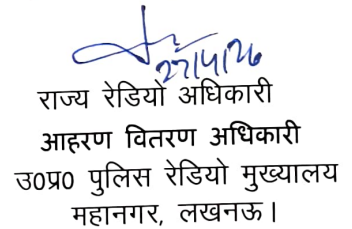 27/4/26
राज्य रेडियो अधिकारी
आहरण वितरण अधिकारी
उ०प्र० पुलिस रेडियो मुख्यालय
महानगर, लखनऊ।